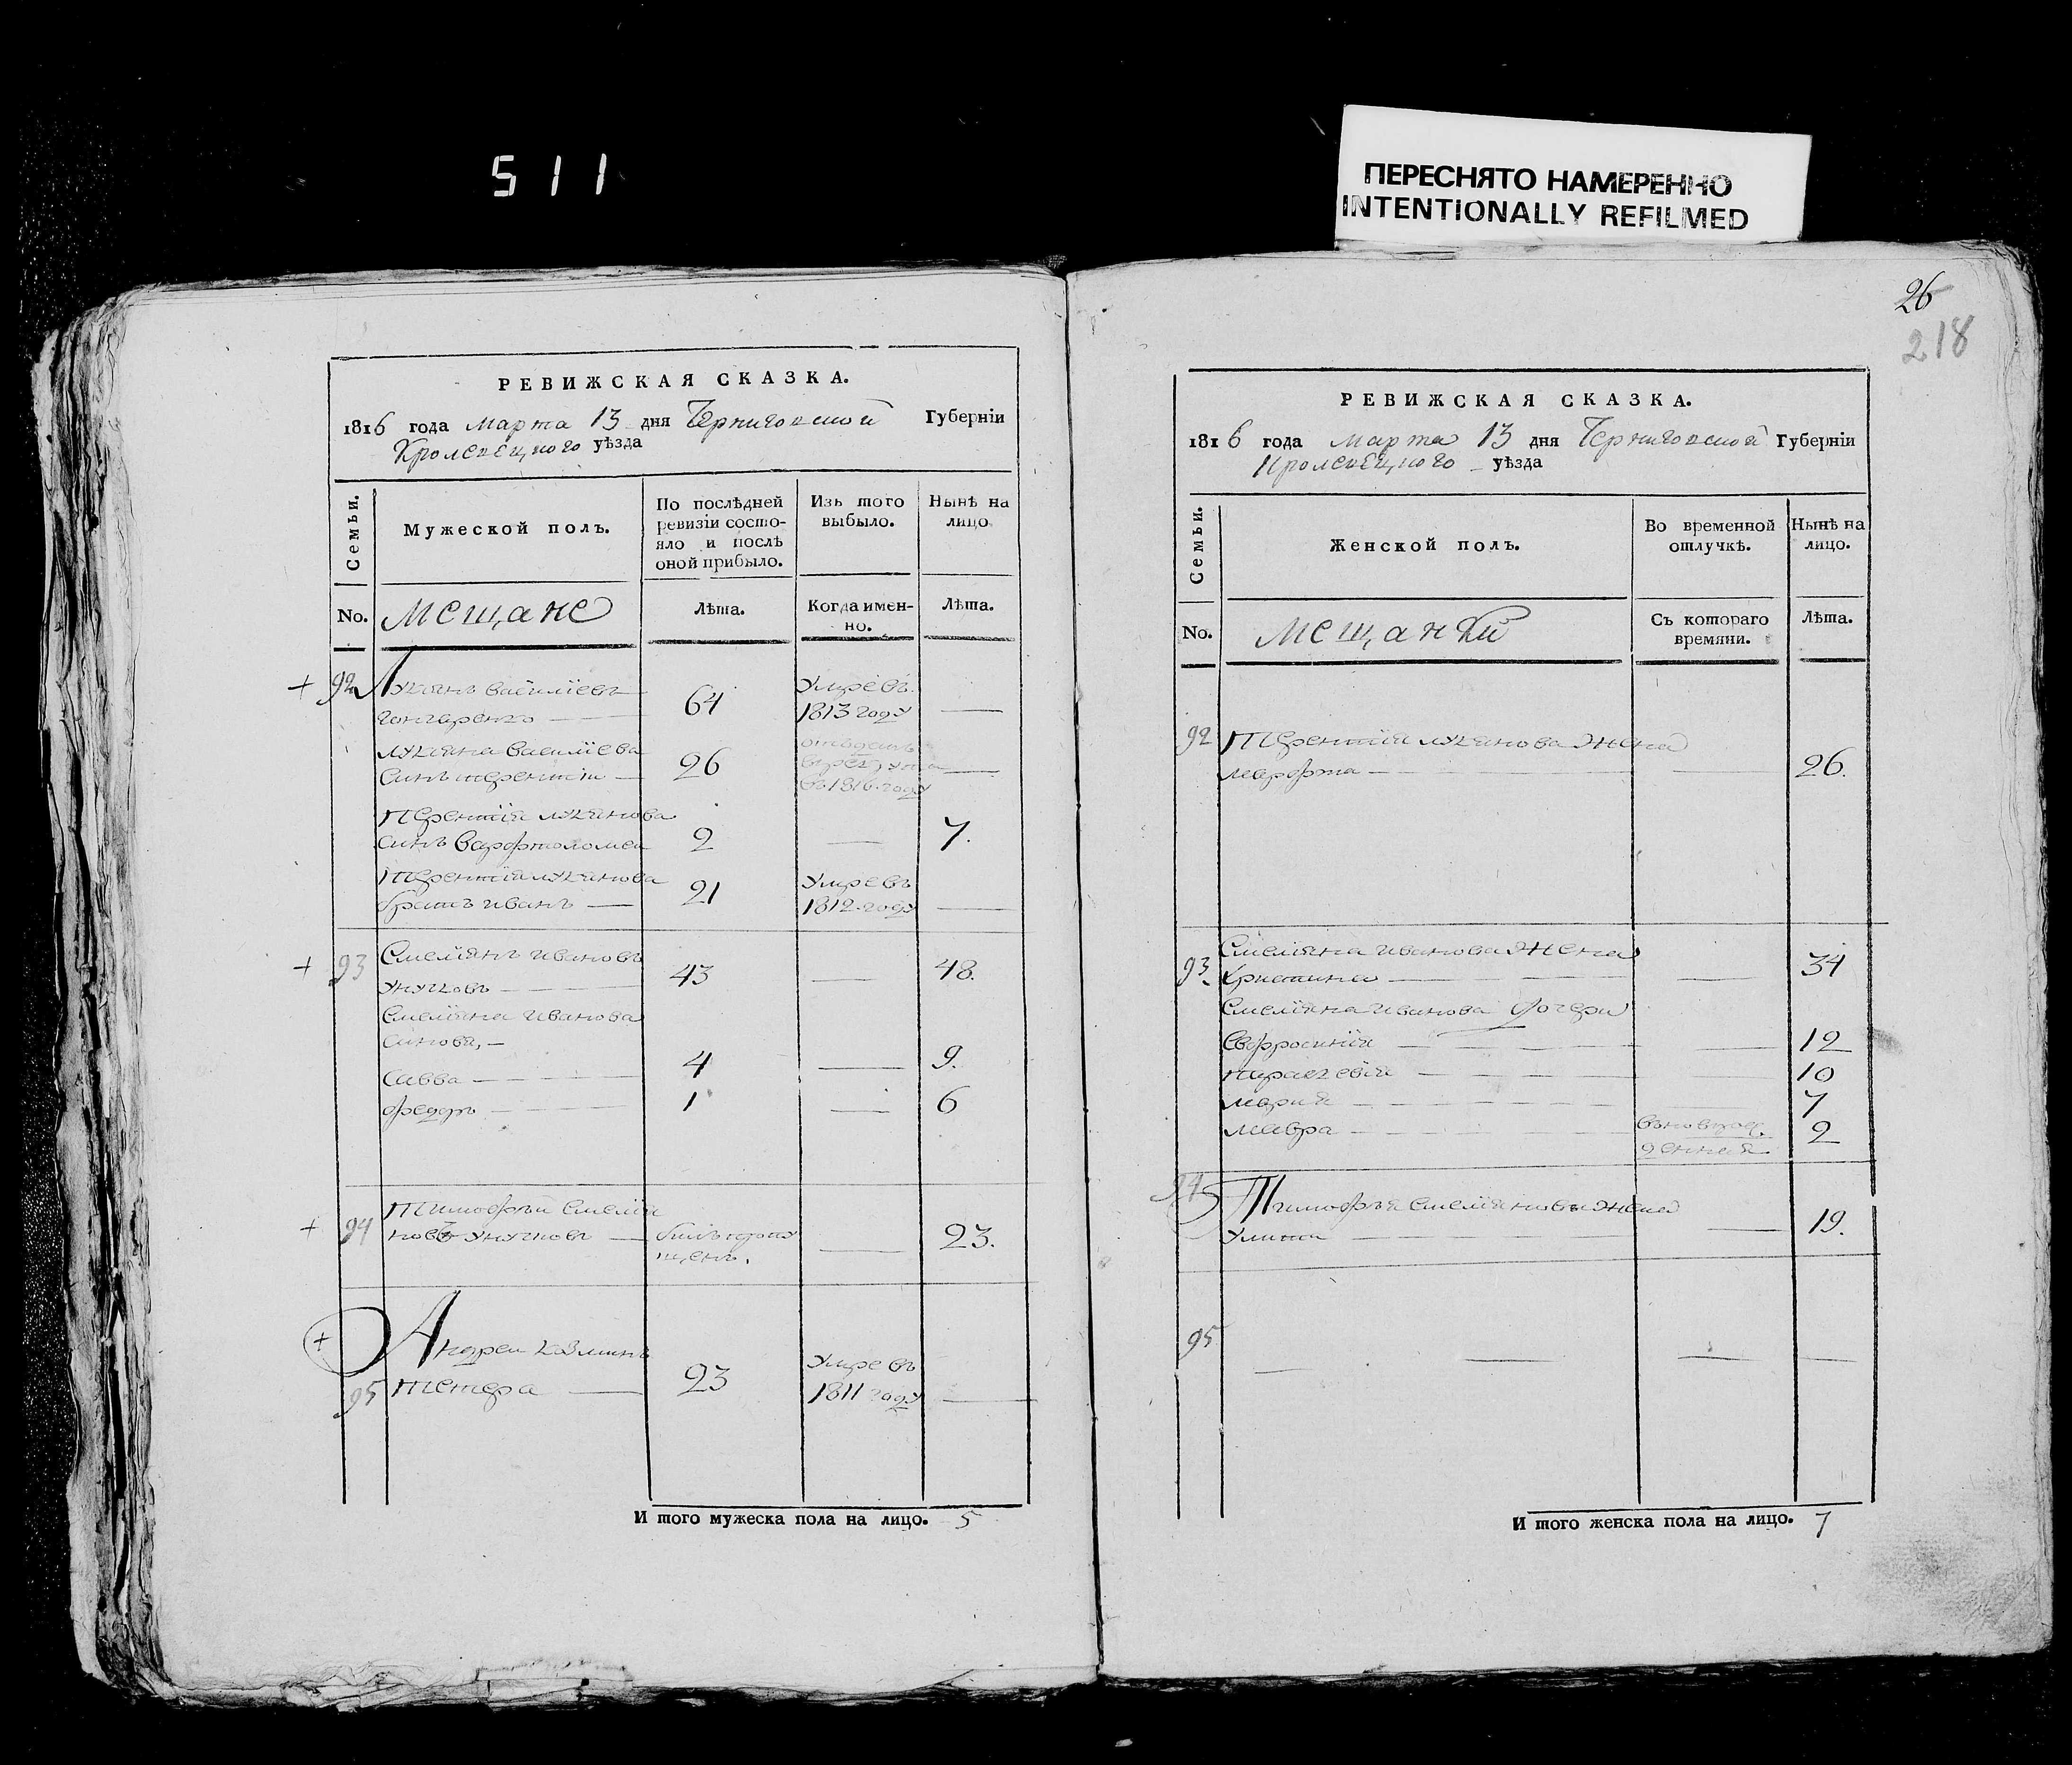 511
ПЕРЕСНЯТО НАМЕРЕННО
INTENTIONALLY REFILMED
26
218
РЕВИЖСКАЯ СКАЗКА.
1816 года марта 13 дня Черниговской Губернїи
Кролевецкого уѣзда
Семьи.
Мужеской полъ.
По послѣдней
ревизїи состо-
яло и послѣ
оной прибыло.
Изъ того
выбыло.
Нынѣ на
лицо
No.
Мещане
Лѣта.
Когда имен-
но.
Лѣта.
92 Лукянъ Василїевъ
гончаренко
64
Умревъ
1813 году
Лукяна Василїева
синъ терентїи
26
отъдатъ
въ 1816 году
Терентїя лукянова
синъ Варфтоломеи
2
7.
Терентїя лукянова
братъ иванъ
21
Умревъ
1812 году
93
Смелїянъ ивановъ
унучковъ
43
48.
Смелїяна иванова
синовя,
Савва
4
9.
федоръ
1
6
94
Тимофѣй Смелїя
новъ унучковъ
билъ пропу
щенъ.
23.
95
Андреи козминъ
тетера
23
Умревъ
1811 году
И того мужеска пола на лицо. 5
РЕВИЖСКАЯ СКАЗКА.
1816 года марта 13 дня Черниговской Губернїи
Кролевецкого уѣзда
Семьи.
Женской полъ.
Во временной
отлучкѣ.
Нынѣ на
лицо.
No.
Мещанки
Съ котораго
времяни.
Лѣта.
92
Терентїя лукянова жена
марфта
26.
93
Смелїяна иванова жена
Христина
34
Смелїяна иванова дочери
Евфросинїя
12
параскевїя
10
марїя
7
мавра
вънов рож
денная
2
94
Тимофѣя смелїянова жена
Улита
19.
95
И того женска пола на лицо. 7